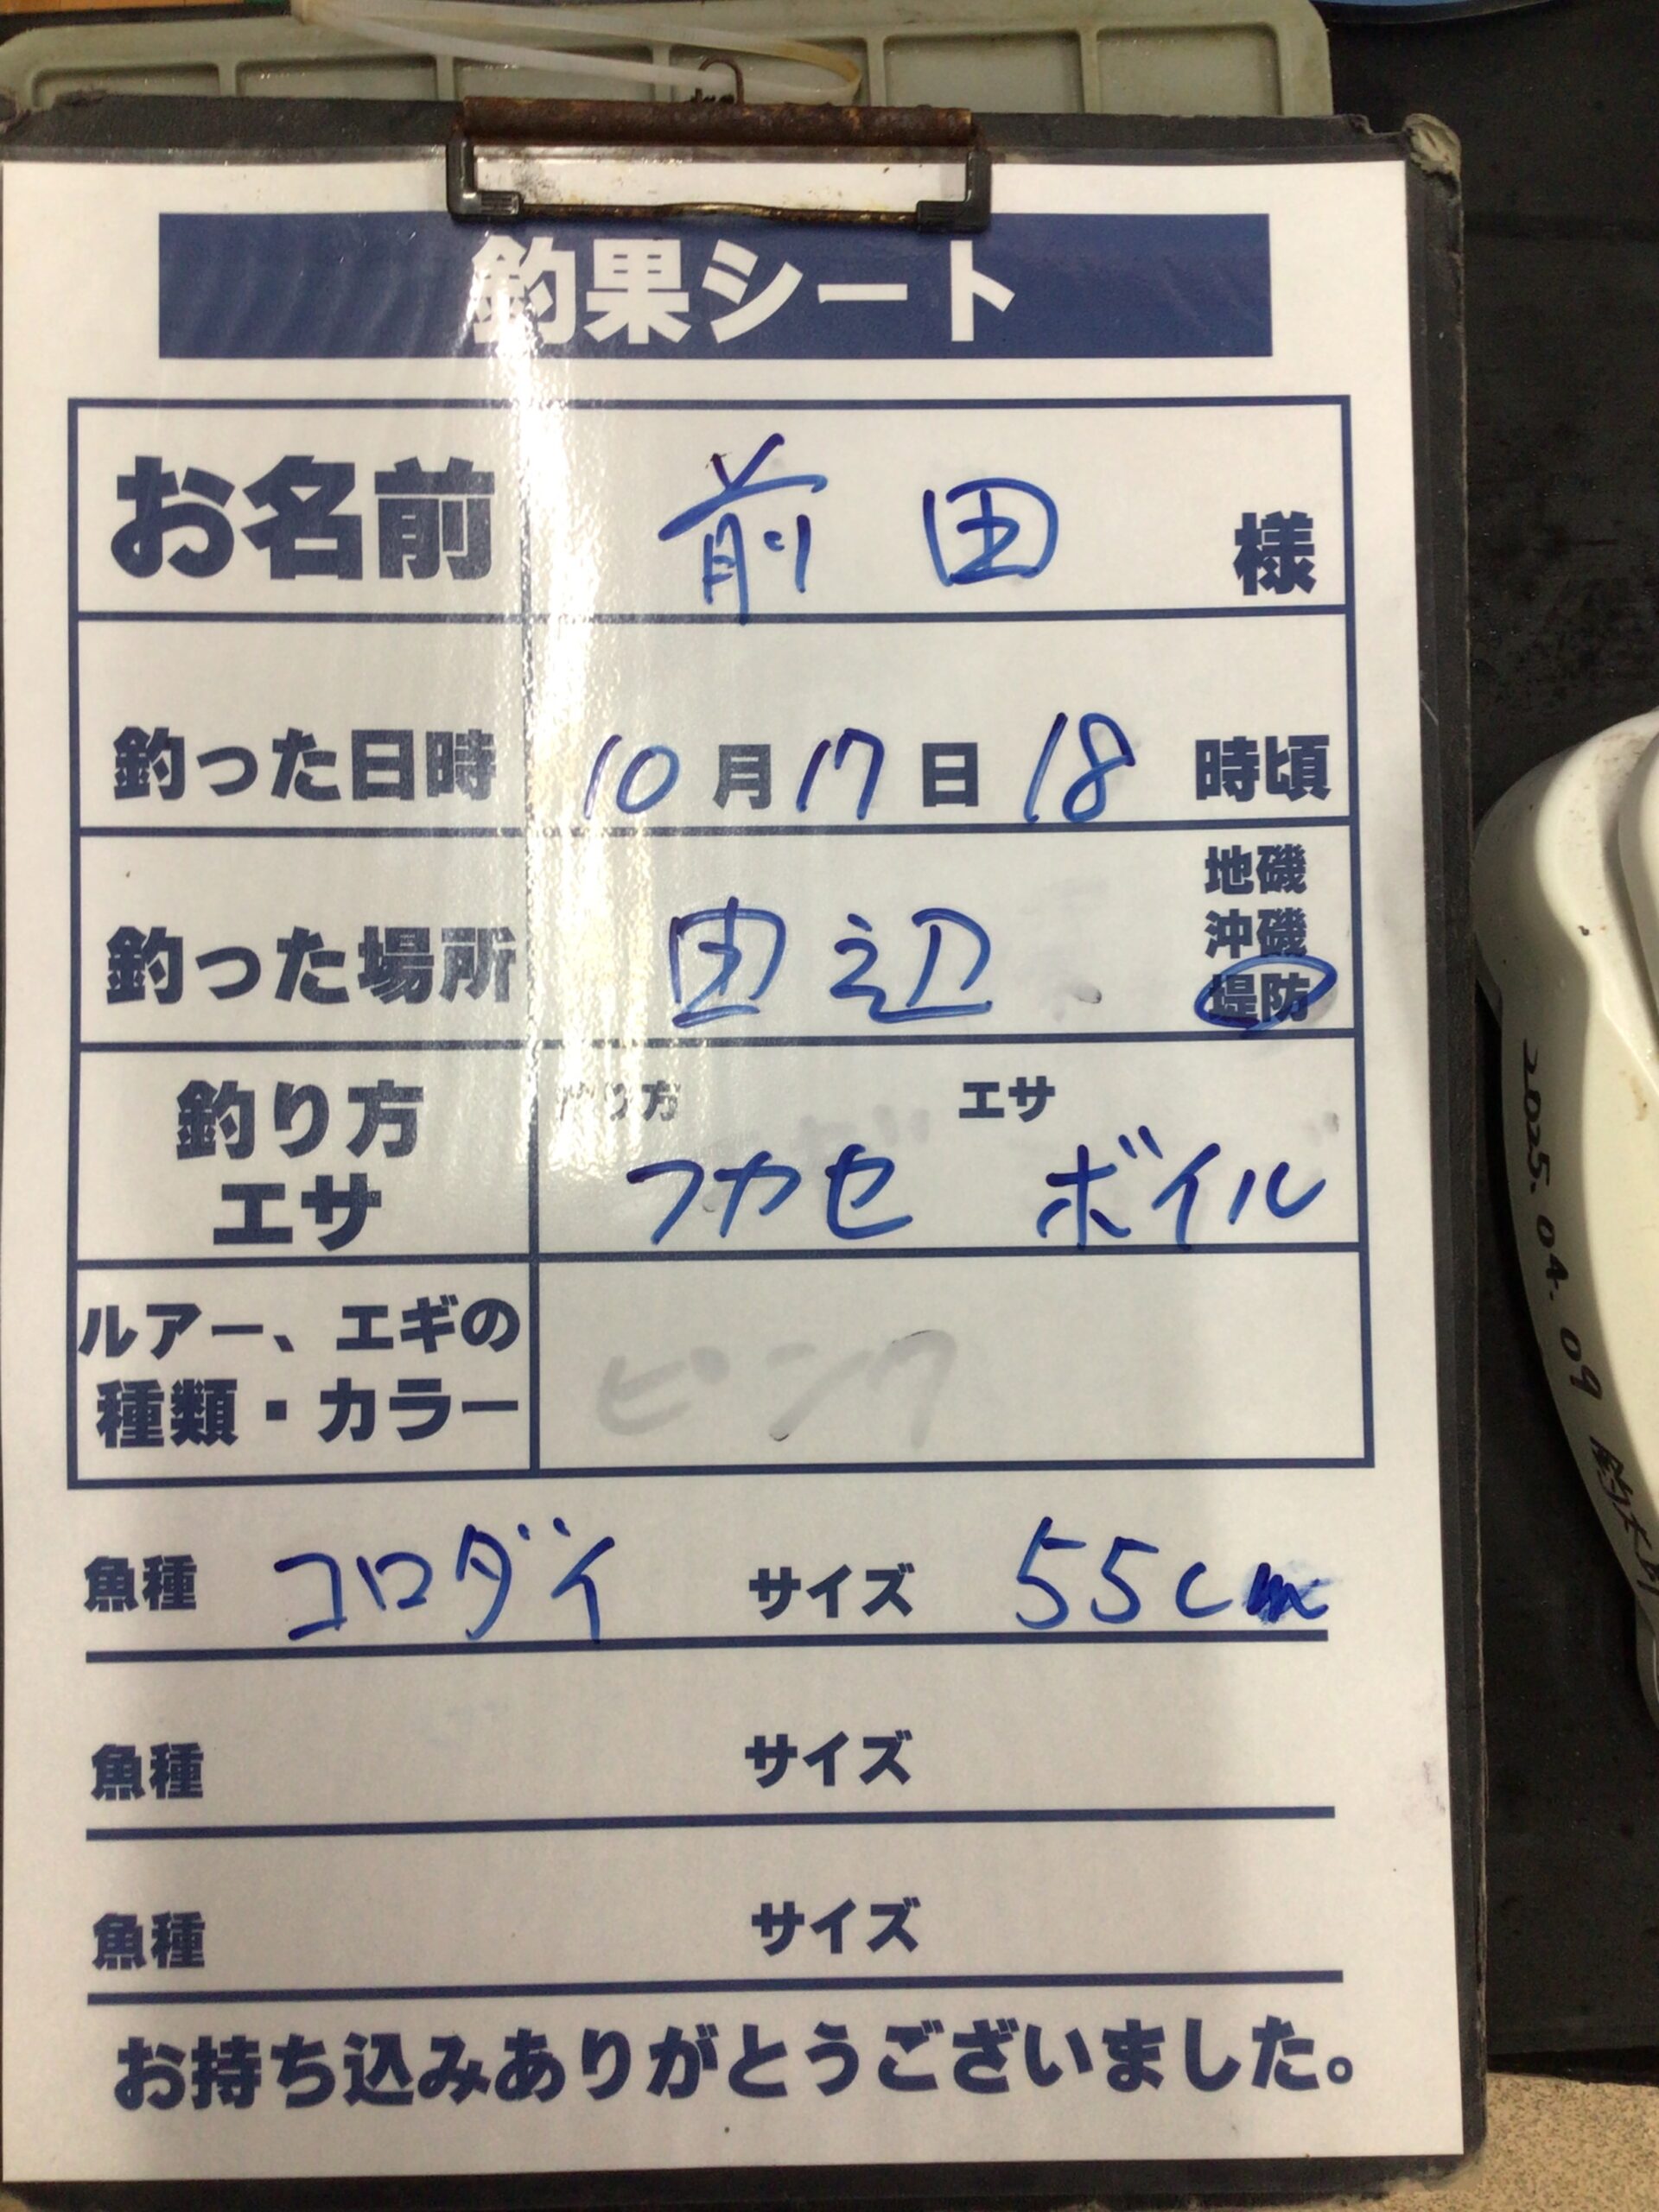 釣果シート
お名前 前田 様
釣った日時 10月17日18時頃
地磯
沖磯
釣った場所 田辺 堤防
釣り方 エサ
釣り方
エサ フカセ ボイル
ルアー、エギの
種類・カラー ピンク
魚種 コロダイ サイズ 55cm
魚種 サイズ
魚種 サイズ
お持ち込みありがとうございました。
2025.04.09